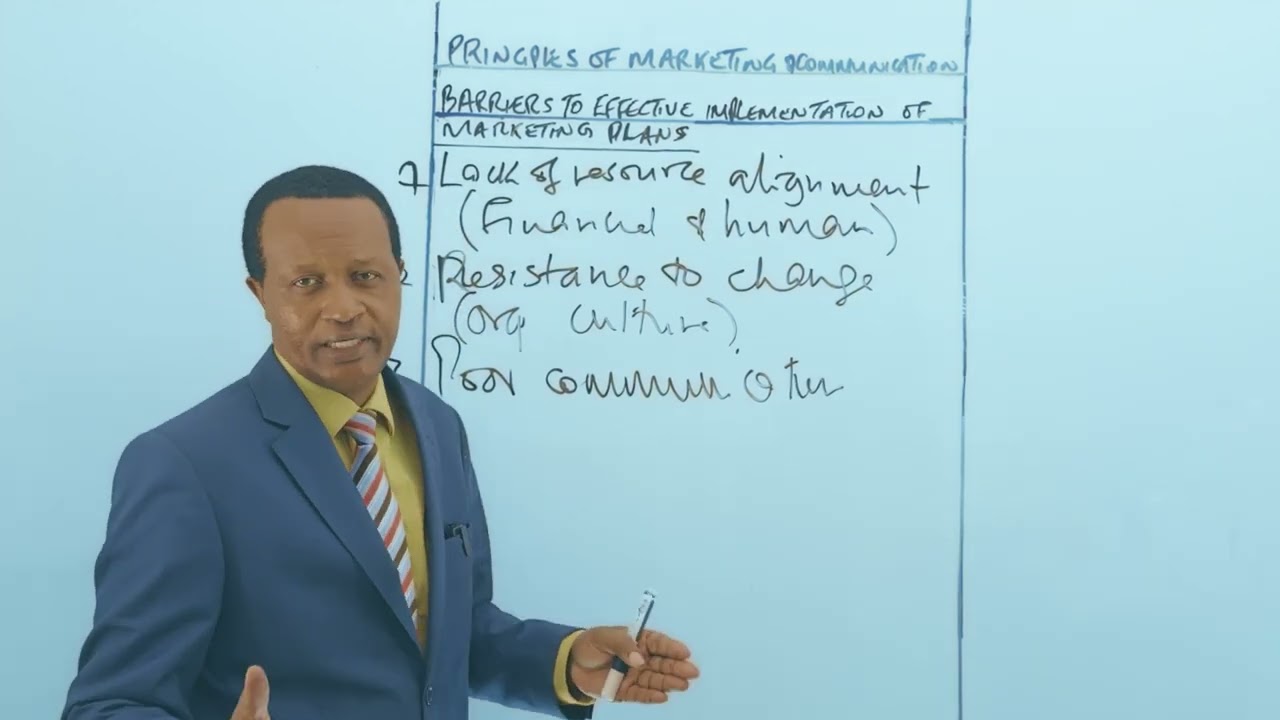 PRINCIPLES OF MARKETING & COMMUNICATION
BARRIERS TO EFFECTIVE IMPLEMENTATION OF
MARKETING PLANS
1 Lack of resource alignment
(Financial & human)
2 Resistance to change
(org culture)
3 Poor communication